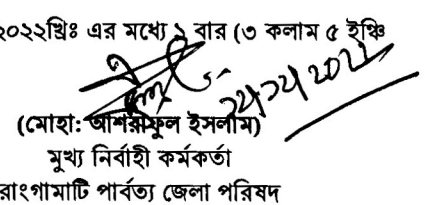 ২০২২খ্রিঃ এর মধ্যে ১ বার (৩ কলাম ৫ ইঞ্চি
(মোহা: আশরাফুল ইসলাম)
মুখ্য নির্বাহী কর্মকর্তা
রাংগামাটি পার্বত্য জেলা পরিষদ